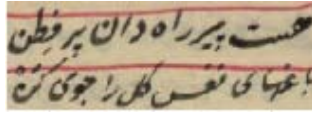 هست پیر راه دان پر فطن
باغهای نفس کل را جوی کن